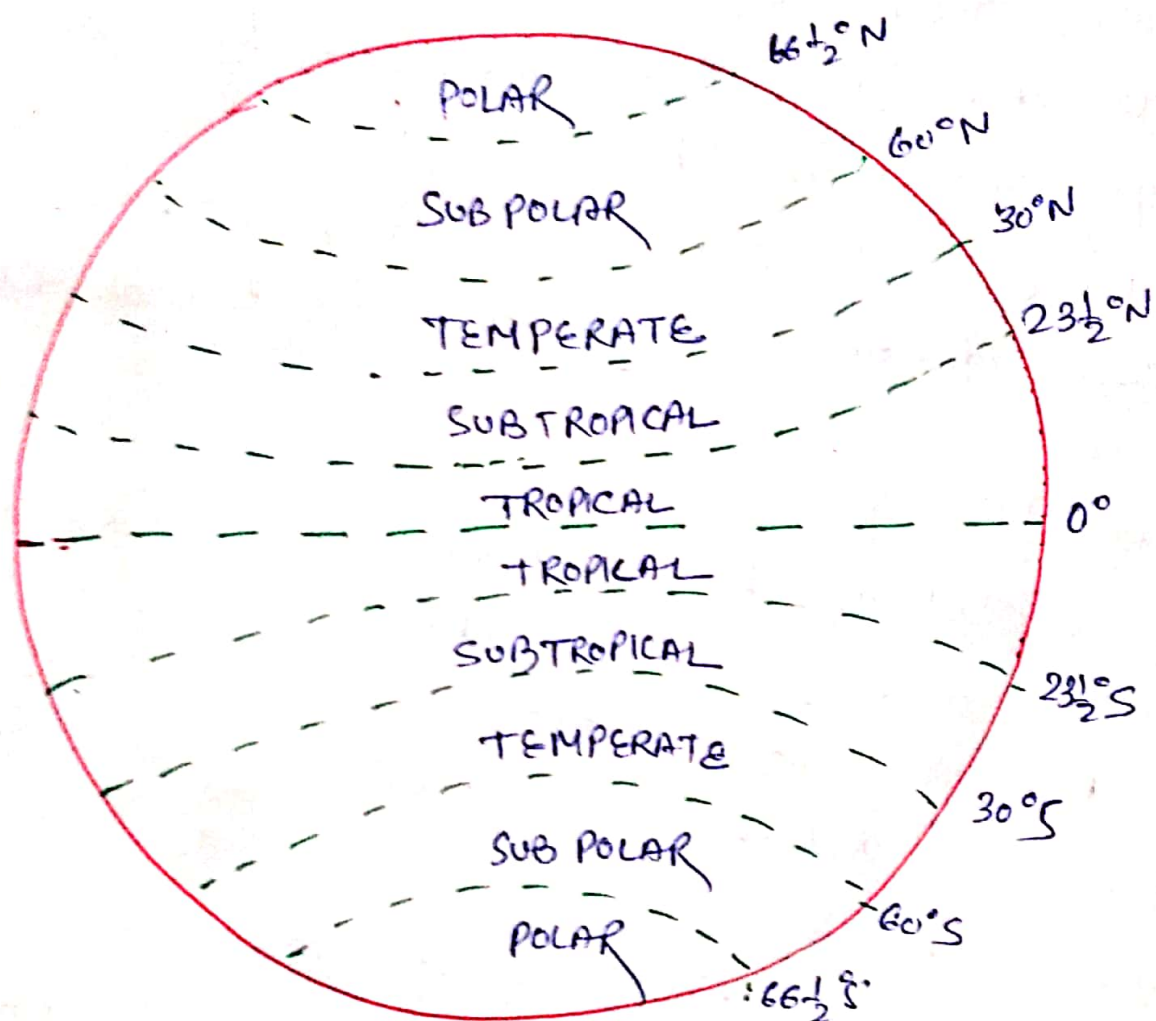 66½°N
POLAR
60°N
SUB POLAR
30°N
TEMPERATE
23½°N
SUBTROPICAL
TROPICAL
0°
TROPICAL
SUBTROPICAL
23½°S
TEMPERATE
30°S
SUB POLAR
60°S
POLAR
66½°S